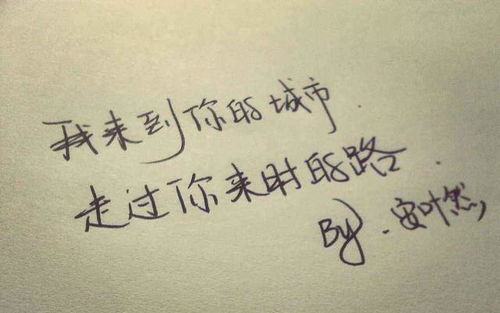 我来到你的城市.
走过你来时的路.
By.安叶然,